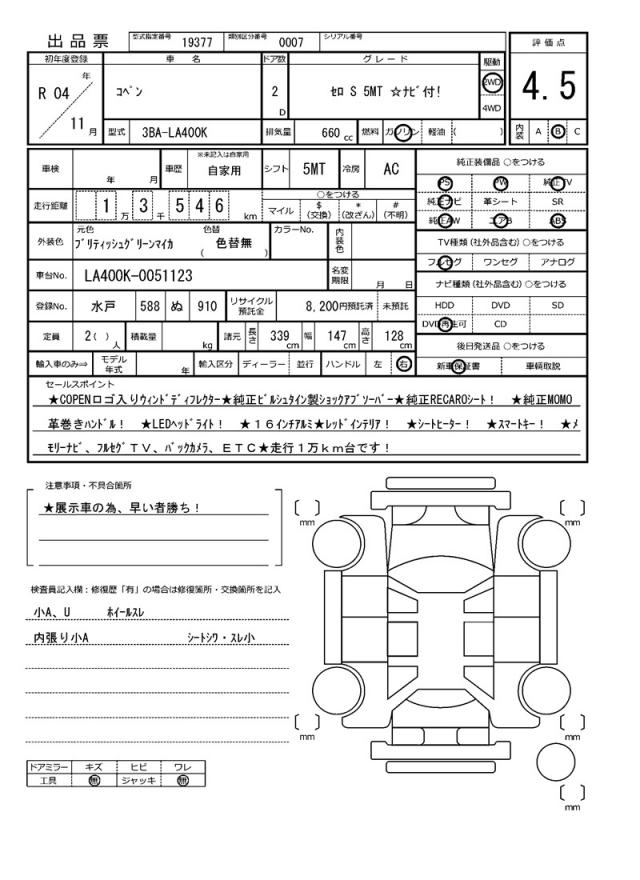 出品票 型式指定番号 19377 類別区分番号 0007 シリアル番号
評価点
初年度登録 車名 ドア数 グレード 駆動
R 04 年 11 月 コペン 2 D セロ S 5MT ☆ナビ付! 2WD 4WD
4.5
型式 3BA-LA400K 排気量 660 cc 燃料 ガソリン 軽油 ( )
内装 A B C
車検 年 月 車歴 ※未記入は自家用 自家用 シフト 5MT 冷房 AC
純正装備品 ○をつける
PS PW 純正TV
走行距離 1 万 3 千 5 4 6 km ○をつける マイル $ (交換) * (改ざん) # (不明)
純正ナビ 革シート SR
純正AW エアB ABS
外装色 元色 ブリティッシュグリーンマイカ 色替 ( 色替無 ) カラーNo. 内装色
TV種類 (社外品含む) ○をつける
フルセグ ワンセグ アナログ
車台No. LA400K-0051123 名変期限 月 日
ナビ種類 (社外品含む) ○をつける
登録No. 水戸 588 ぬ 910 リサイクル預託金 8,200円預託済 未預託
HDD DVD SD
DVD再生可 CD
定員 2( ) 人 積載量 kg 諸元 長さ 339 cm 幅 147 cm 高さ 128 cm
後日発送品 ○をつける
輸入車のみ⇒ モデル年式 年 輸入区分 ディーラー 並行 ハンドル 左 右
新車保証書 車輌取説
セールスポイント
★COPENロゴ入りウィンドディフレクター★純正ビルシュタイン製ショックアブソーバー★純正RECAROシート! ★純正MOMO
革巻きハンドル! ★LEDヘッドライト! ★16インチアルミ★レッドインテリア! ★シートヒーター! ★スマートキー! ★メ
モリーナビ、フルセグTV、バックカメラ、ETC★走行1万km台です!
注意事項・不具合箇所
★展示車の為、早い者勝ち!
検査員記入欄：修復歴「有」の場合は修復箇所・交換箇所を記入
小A、U ホイールスレ
内張り小A シートシワ・スレ小
ドアミラー キズ ヒビ ワレ
工具 無 ジャッキ 無
[ ] mm
[ ] mm
[ ] mm
[ ] mm
[ ] mm